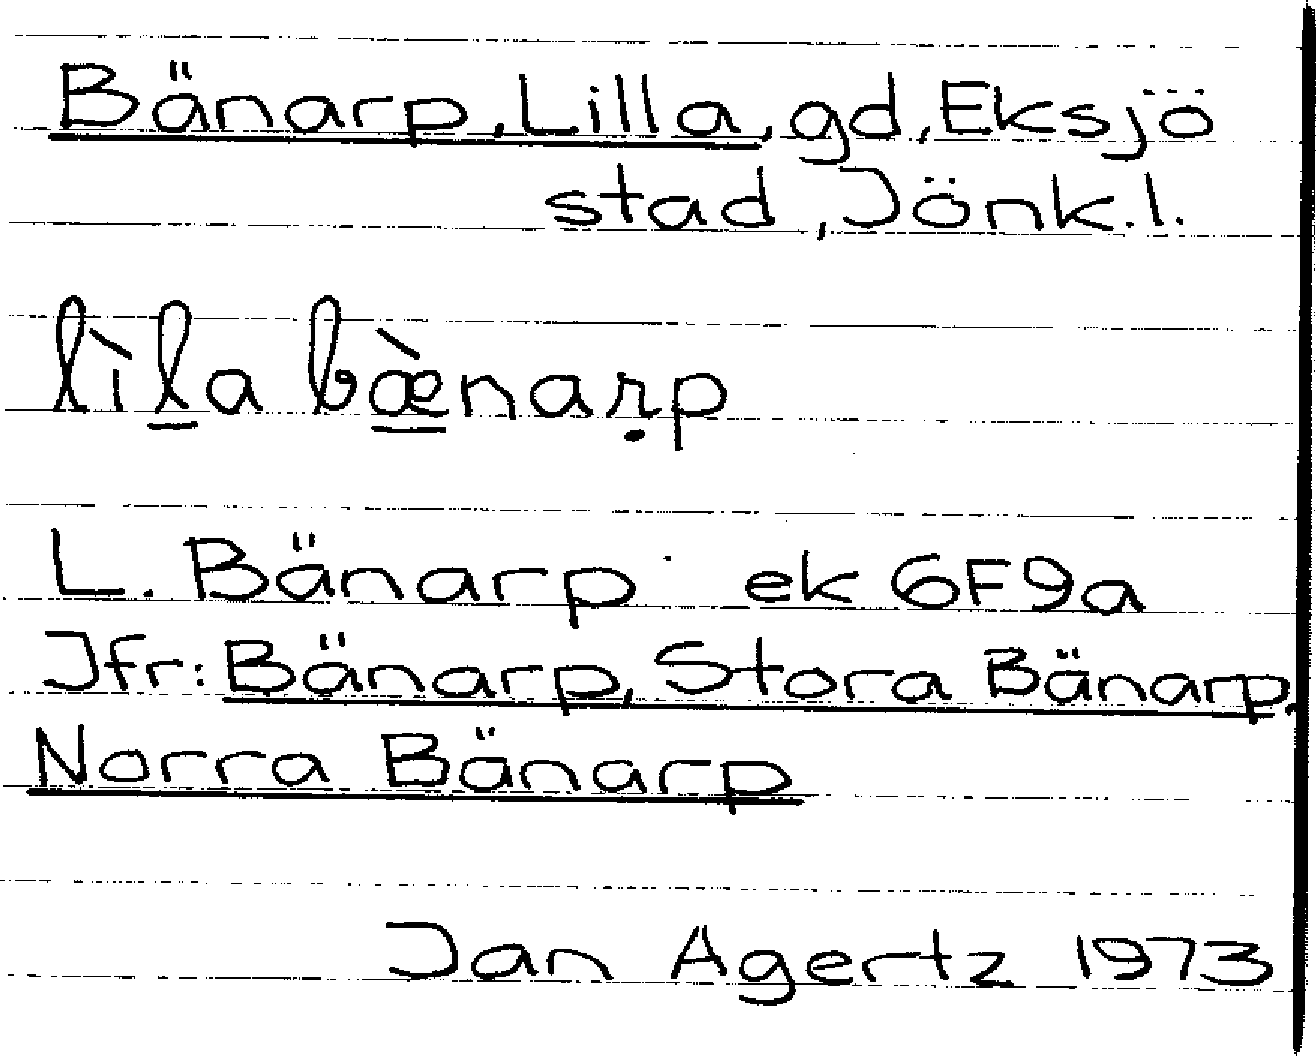 Bänarp, Lilla, gd, Eksjö
stad, Jönk.l.
lìl̠a bæ̠̀narp
L. Bänarp ek 6F9a
Jfr: Bänarp, Stora Bänarp,
Norra Bänarp
Jan Agertz 1973